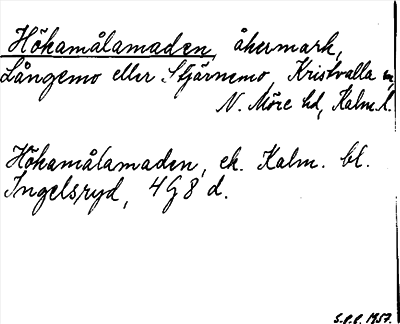 Hökamålamaden, åkermark,
Långemo eller Stjärnemo, Kristvalla sn,
N. Möre hd, Kalm. l.
Hökamålamaden, ek. Kalm. bl.
Ingelsryd, 4G8d.
1957.